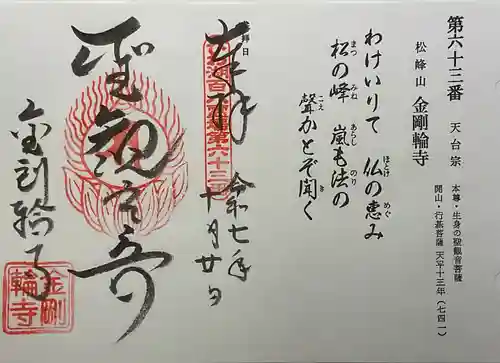 第六十三番 天台宗 本尊・生身の聖観音菩薩
開山・行基菩薩 天平十三年(七四一)
松峰山 金剛輪寺
わけいりて 仏の恵み
ほとけ めぐ
松の峰 嵐も法の
まつ みね あらし のり
聲かとぞ聞く
こえ き
拝日
奉拝 令和七年
十月廿日
第六十三
聖観世音
金剛輪寺
金剛
輪寺